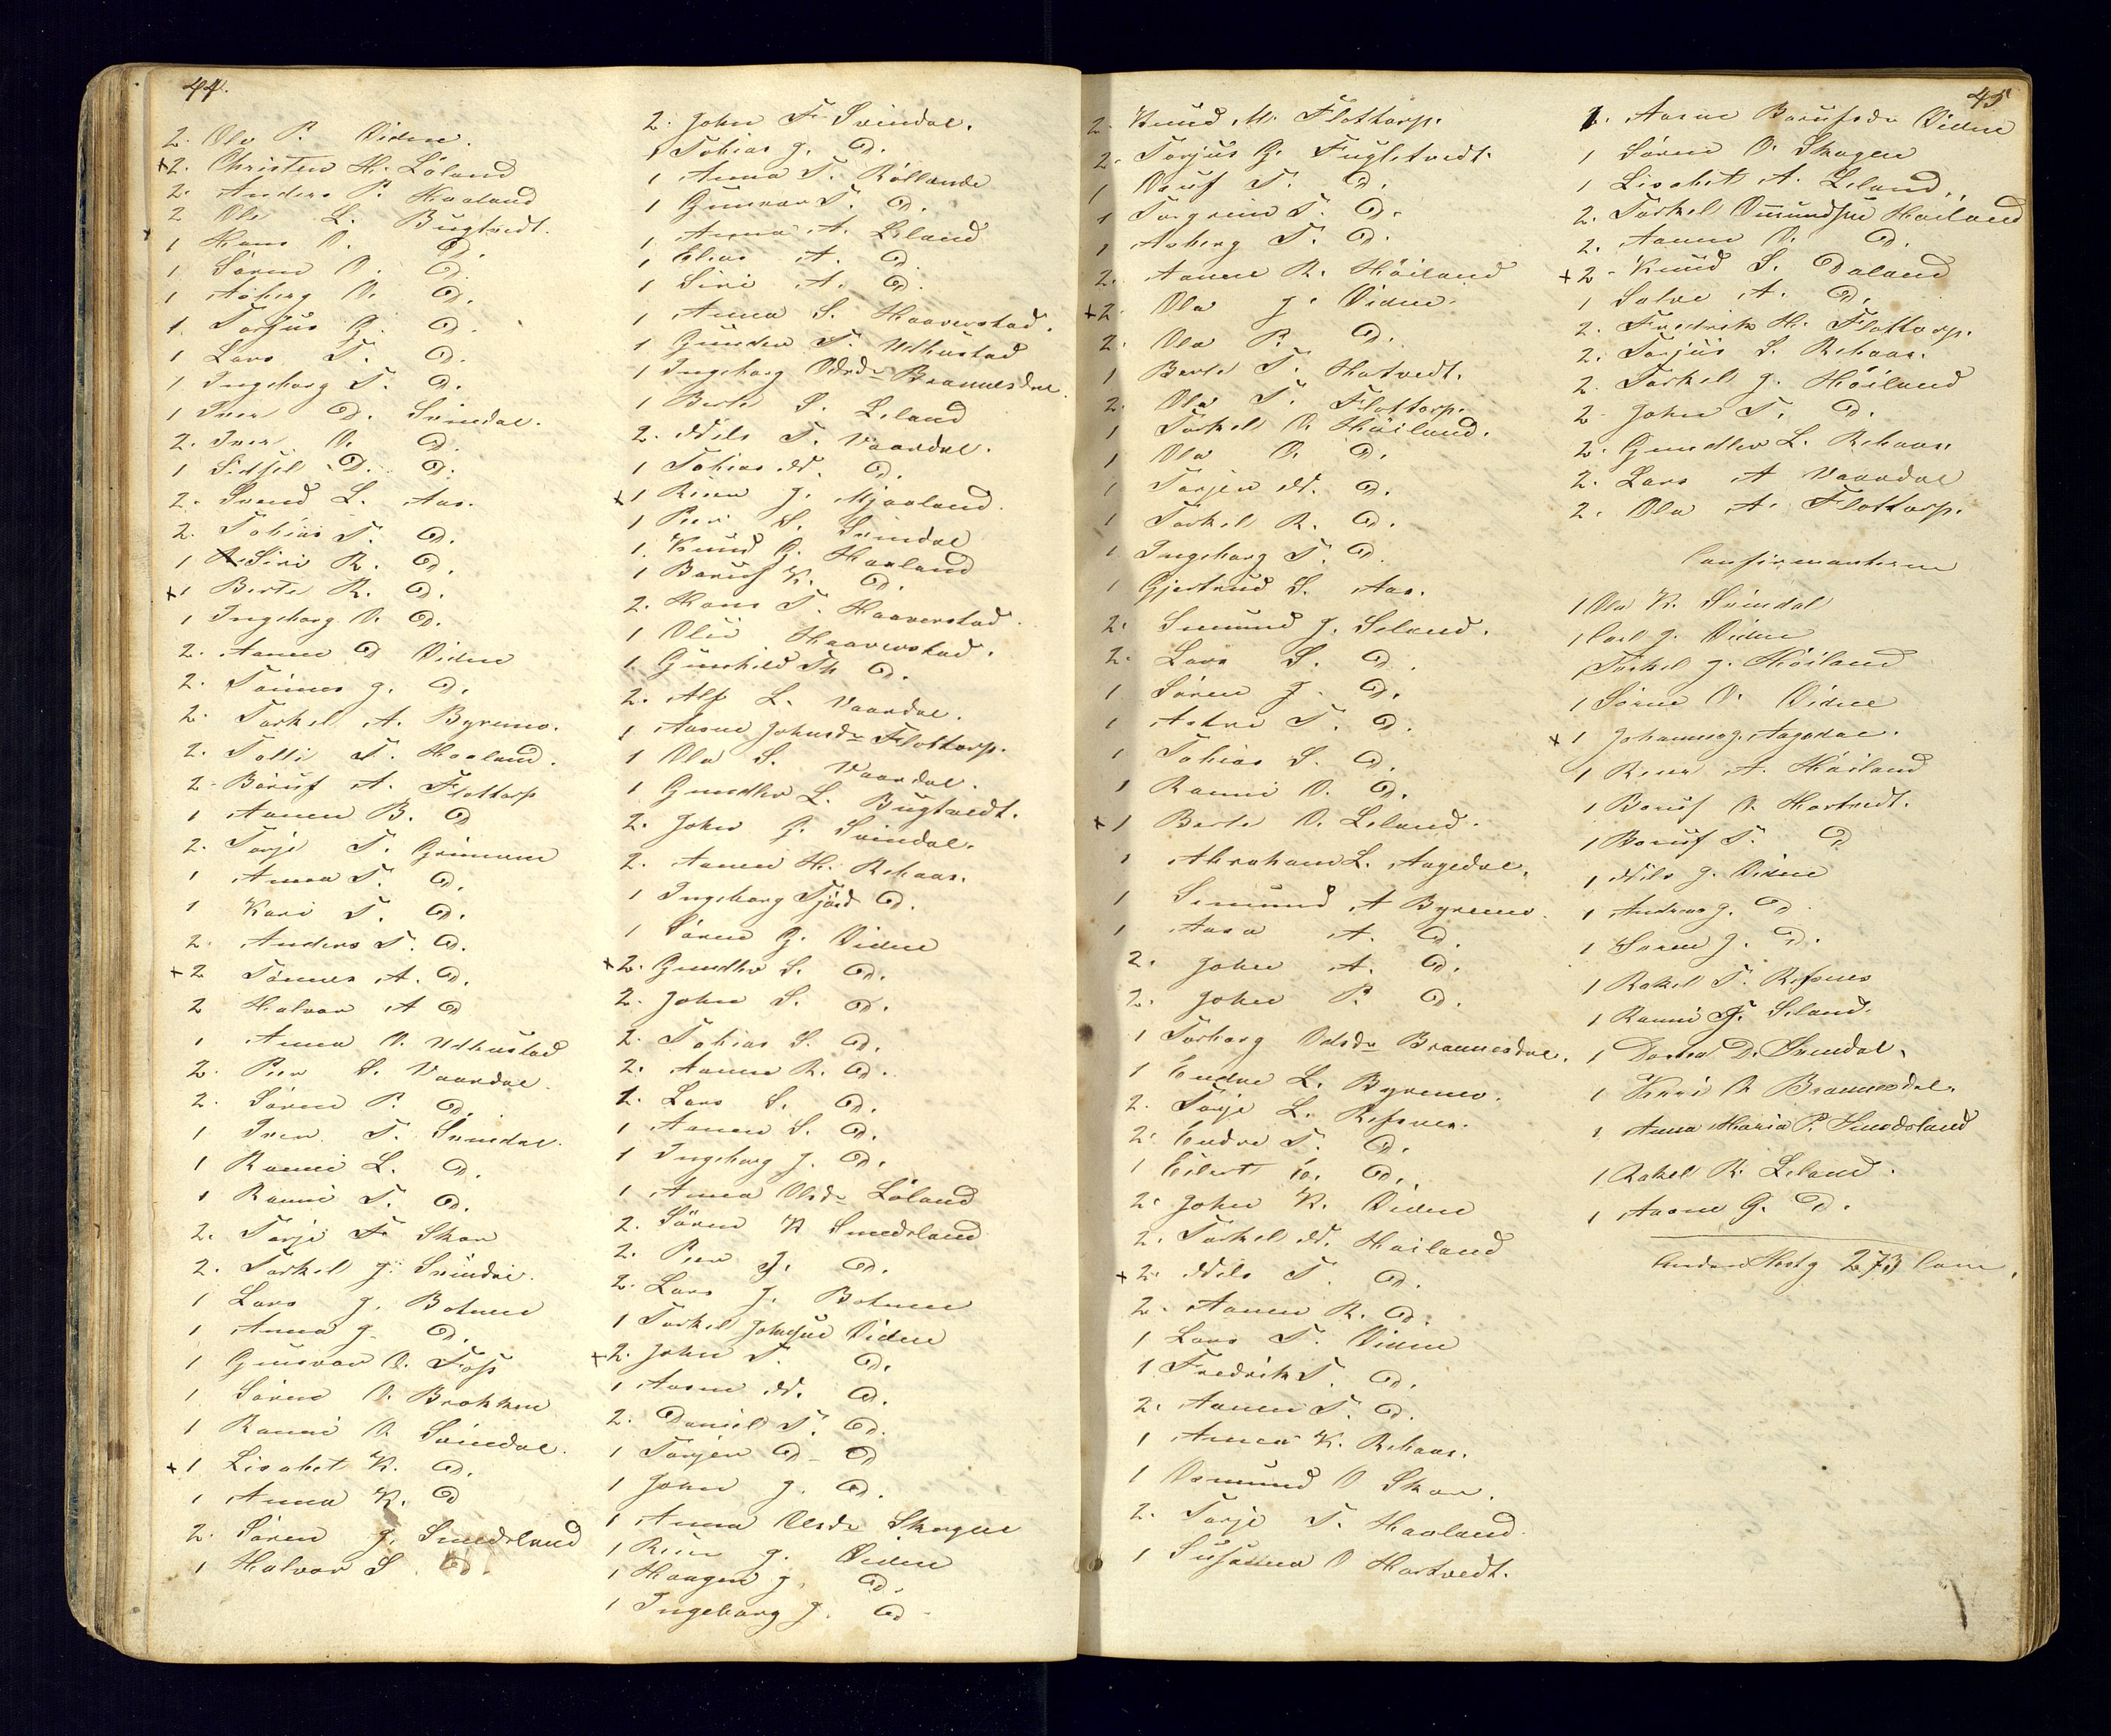 44.
2. Ole P. Viden.
+2. Christen H. Löland
2. Anders P. Haaland
2 Ole L. Bugtvedt.
1 Hans O. D.
1 Sören O. D.
1 Asberg O. D.
1. Torjus G. D.
1 Lars T. D.
1 Ingeborg T. D.
1 Iver D. Svindal.
2. Iver O. D.
1 Sidsel D. D.
2. Svend L. Aas.
2. Tobias T. D.
1 Siri R. D.
+1 Berte R. D.
1 Ingeborg O. D.
2. Aanen D Viden
2. Tönnes J. D.
2. Torkel A. Byremo.
2. Tolli T. Haaland.
2. Böruf A. Flottorp
1 Aanen B. D
2. Torje T. Grimenes
1 Anna T. D.
1 Kari T. D.
2. Anders T. D.
+2 Tönnes A. D.
2 Halvor A D
1 Anna O. Udhustad
2. Peer S. Vaardal.
2. Sören P. D.
1 Iver T. Svindal.
1 Ranni L. D.
1 Ranni T. D.
2. Torje F Skar
2. Torkel J. Svindal.
1 Lars J. Botnen
1 Anna J. D.
1 Gunvor O. Foss
1 Sören O. Brokken
1 Ranni O Svindal.
+1 Lisabet K. D.
1 Anna K. D
2. Sören J. Smedsland
1 Halvor S D.
2. John F Svindal.
1 Tobias J. D.
1 Anna T. Röllende
1 Gunvor T. D.
1 Anna A. Leland
1 Elias A. D.
1 Siri A. D.
1 Anna S. Haaverstad.
1 Gunder T. Udhustad
1 Ingeborg Odsdr Brannesdal.
1 Berte S. Leland
2. Nils T. Vaardal.
1 Tobias N. D.
+1 Rein J. Mjaaland.
1 Peer S. Svindal
1. Knud G. Haaland
1 Baruf K. D.
2. Hans T. Haaverstad.
1 Haaverstad.
1. Gunhild Th D.
2. Alf L. Vaardal.
1 Aasne Johnsdr Flottorp.
1 Ole S. Vaardal.
1 Gundler L. Bugtvedt.
2. John G. Svindal.
2. Aanen H. Rehaas.
1 Ingeborg D.
1 Sören G. Viden
+2. Gundler S. D.
2. John S. D.
2. Tobias S. D.
2. Aanen R. D.
2. Lars S. D.
1 Aanen S. D.
1 Ingeborg J. D.
1 Anna Olsdr Löland
2. Sören K Smedsland
2. Peer J. D.
2. Lars J. Botnen
1 Torkel Johnsen Viden
+2. John T. D.
1 Aasne N. D.
2. Daniel T. D.
1 Torjer D D
1 John J. D.
1 Anna Olsdr Skagen
1 Rein J. Viden
1 Haagen J. D.
1 Ingeborg J. D
2. Knud M. Flottorp.
2. Torjus G. Fuglstvedt.
1 Oruf T. D.
1 Torgrim T. D.
1 Asberg T. D.
2. Aanen R. Höiland
+2. Ole J. Viden.
2. Ole P. D.
1 Berte T. Hatvedt.
2. Ole T. Flottorp.
1 Torkel O. Höiland.
1 Ole O. D.
1 Torjer N. D.
1 Torkel R. D.
1 Ingeborg T. D
1 Gjertrud S. Aas.
2. Smund J. Seland.
2. Lars S. D.
1 Sören J. D.
1 Astri T. D.
1 Tobias S. D.
1 Ranni O. D.
+1 Berte O. Leland.
1 Abraham L. Aagedal.
1 Simund A Byremo.
1 Aasa A. D.
2. John A. D.
2. John P. D.
1 Torborg Odsdr Brannesdal.
1 Endre L. Byremo.
2. Torje L. Refsnes.
2. Endre T. D.
1 Eilert E. D.
2. John K. Viden
2. Torkel N. Höiland
+2. Nils T. D.
2. Aanen R. D.
1 Lars T. Viden
1 Fredrik T. D.
2. Aanen T. D.
1 Anna K. Rehaas.
1 Osmund O Skar.
2. Torje T. Haaland.
1 Susanna O Hartvedt.
45
1. Aasne Barufsdr Viden
1 Sören O. Skagen
1 Lisabet A. Leland.
2. Torkel Omundsen Höiland
2. Aanen O. D.
+2. Knud S. Daland
1 Salve A. D.
2. Fredrik H. Flottorp.
2. Torjus S. Rehaas.
2. Torkel J. Höiland
2 John T. D.
2. Gundler L. Rehaas.
2. Lars A Vaardal
2. Ole A. Flottorp.
Confirmanterne
1 Ole K. Svindal
1 Carl J. Viden
1 Torkel J. Höiland
1 Sören O. Viden
+1 Johannes J. Aagedal.
1 Rein A. Höiland
1 Boruf O. Hartvedt.
1 Boruf T. D
1 Nils J. Viden
1 Andreas J. D
1 Sören J. D.
1 Rakel T. Refsnes
1 Ranni T. Seland.
1 Dortea D. Svindal.
1 Kari O Brannesdal.
1 Anna Maria P. Smedsland
1 Rakel R. Leland.
1 Aasne G. D.
273 Com.